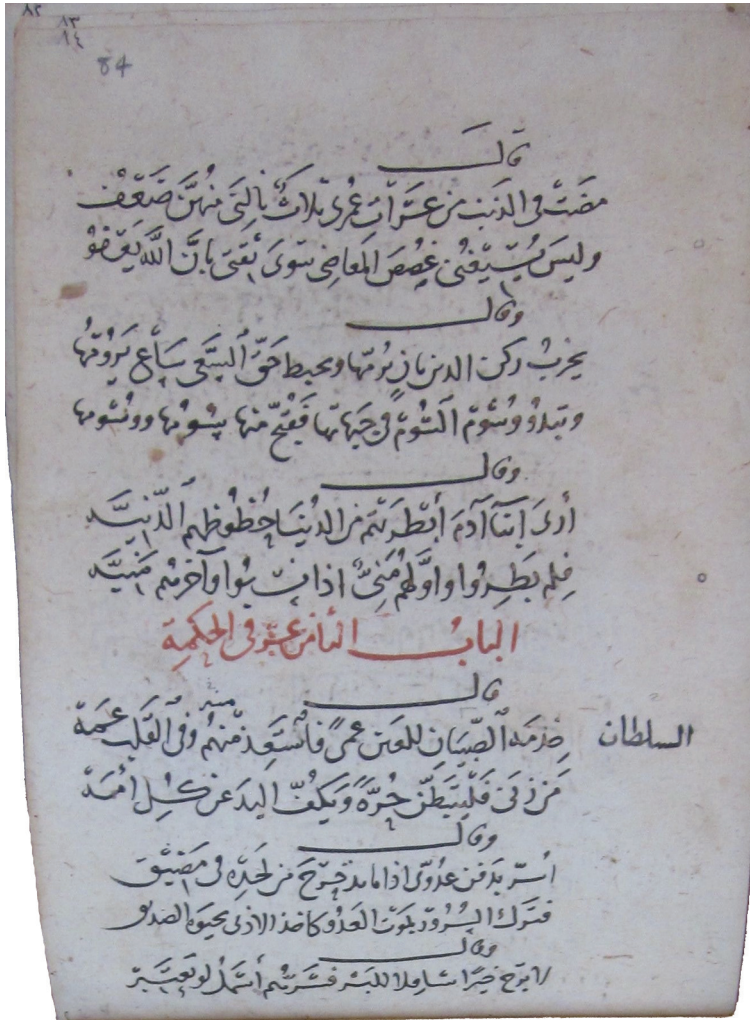 ٨٢
٨٣
١٤
84
قال
مضت في الذنب من عشرات عمري ثلاث بالتي منهن ضعف
وليس يسيغني غصص المعاصي سوى ثقتي بان الله يعفو
وقال
يخرب ركن الدين بان يرمها ويحبط حق السعي ساع يرومها
وتبدو وشوم الشوم في جبهاتها فقبح منها
وقال
أرى ابنا آدم أبطرتهم من الدنيا حظوظهم الدنيه
فلم بطروا واولهم مني اذا نسبوا وآخرهم منيه
الباب الثامن عشر في الحكمة
قال
السلطان
خدمة الصبيان للعين عمى فاستعذ منهم وفي القلب عمه
من زنى فليتبطن حرة ويكف اليد عن كل أمه
وقال
أسر بدفن عدوي اذا ما تدحرج من لحده في مضيق
فترك السرور بموت العدو كأخذ الاذى بحيوة الصديق
وقال
لا ترج خيرا شاملا للبشر فشرهم أشمل لو تعتبر